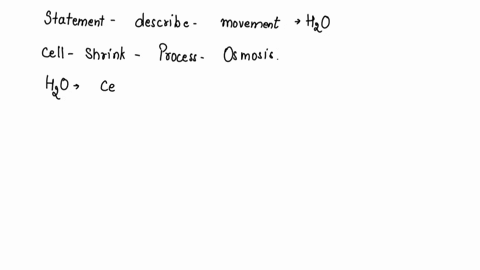 Statement - describe - movement → H₂O
cell - shrink - Process - Osmosis.
H₂O → Ce